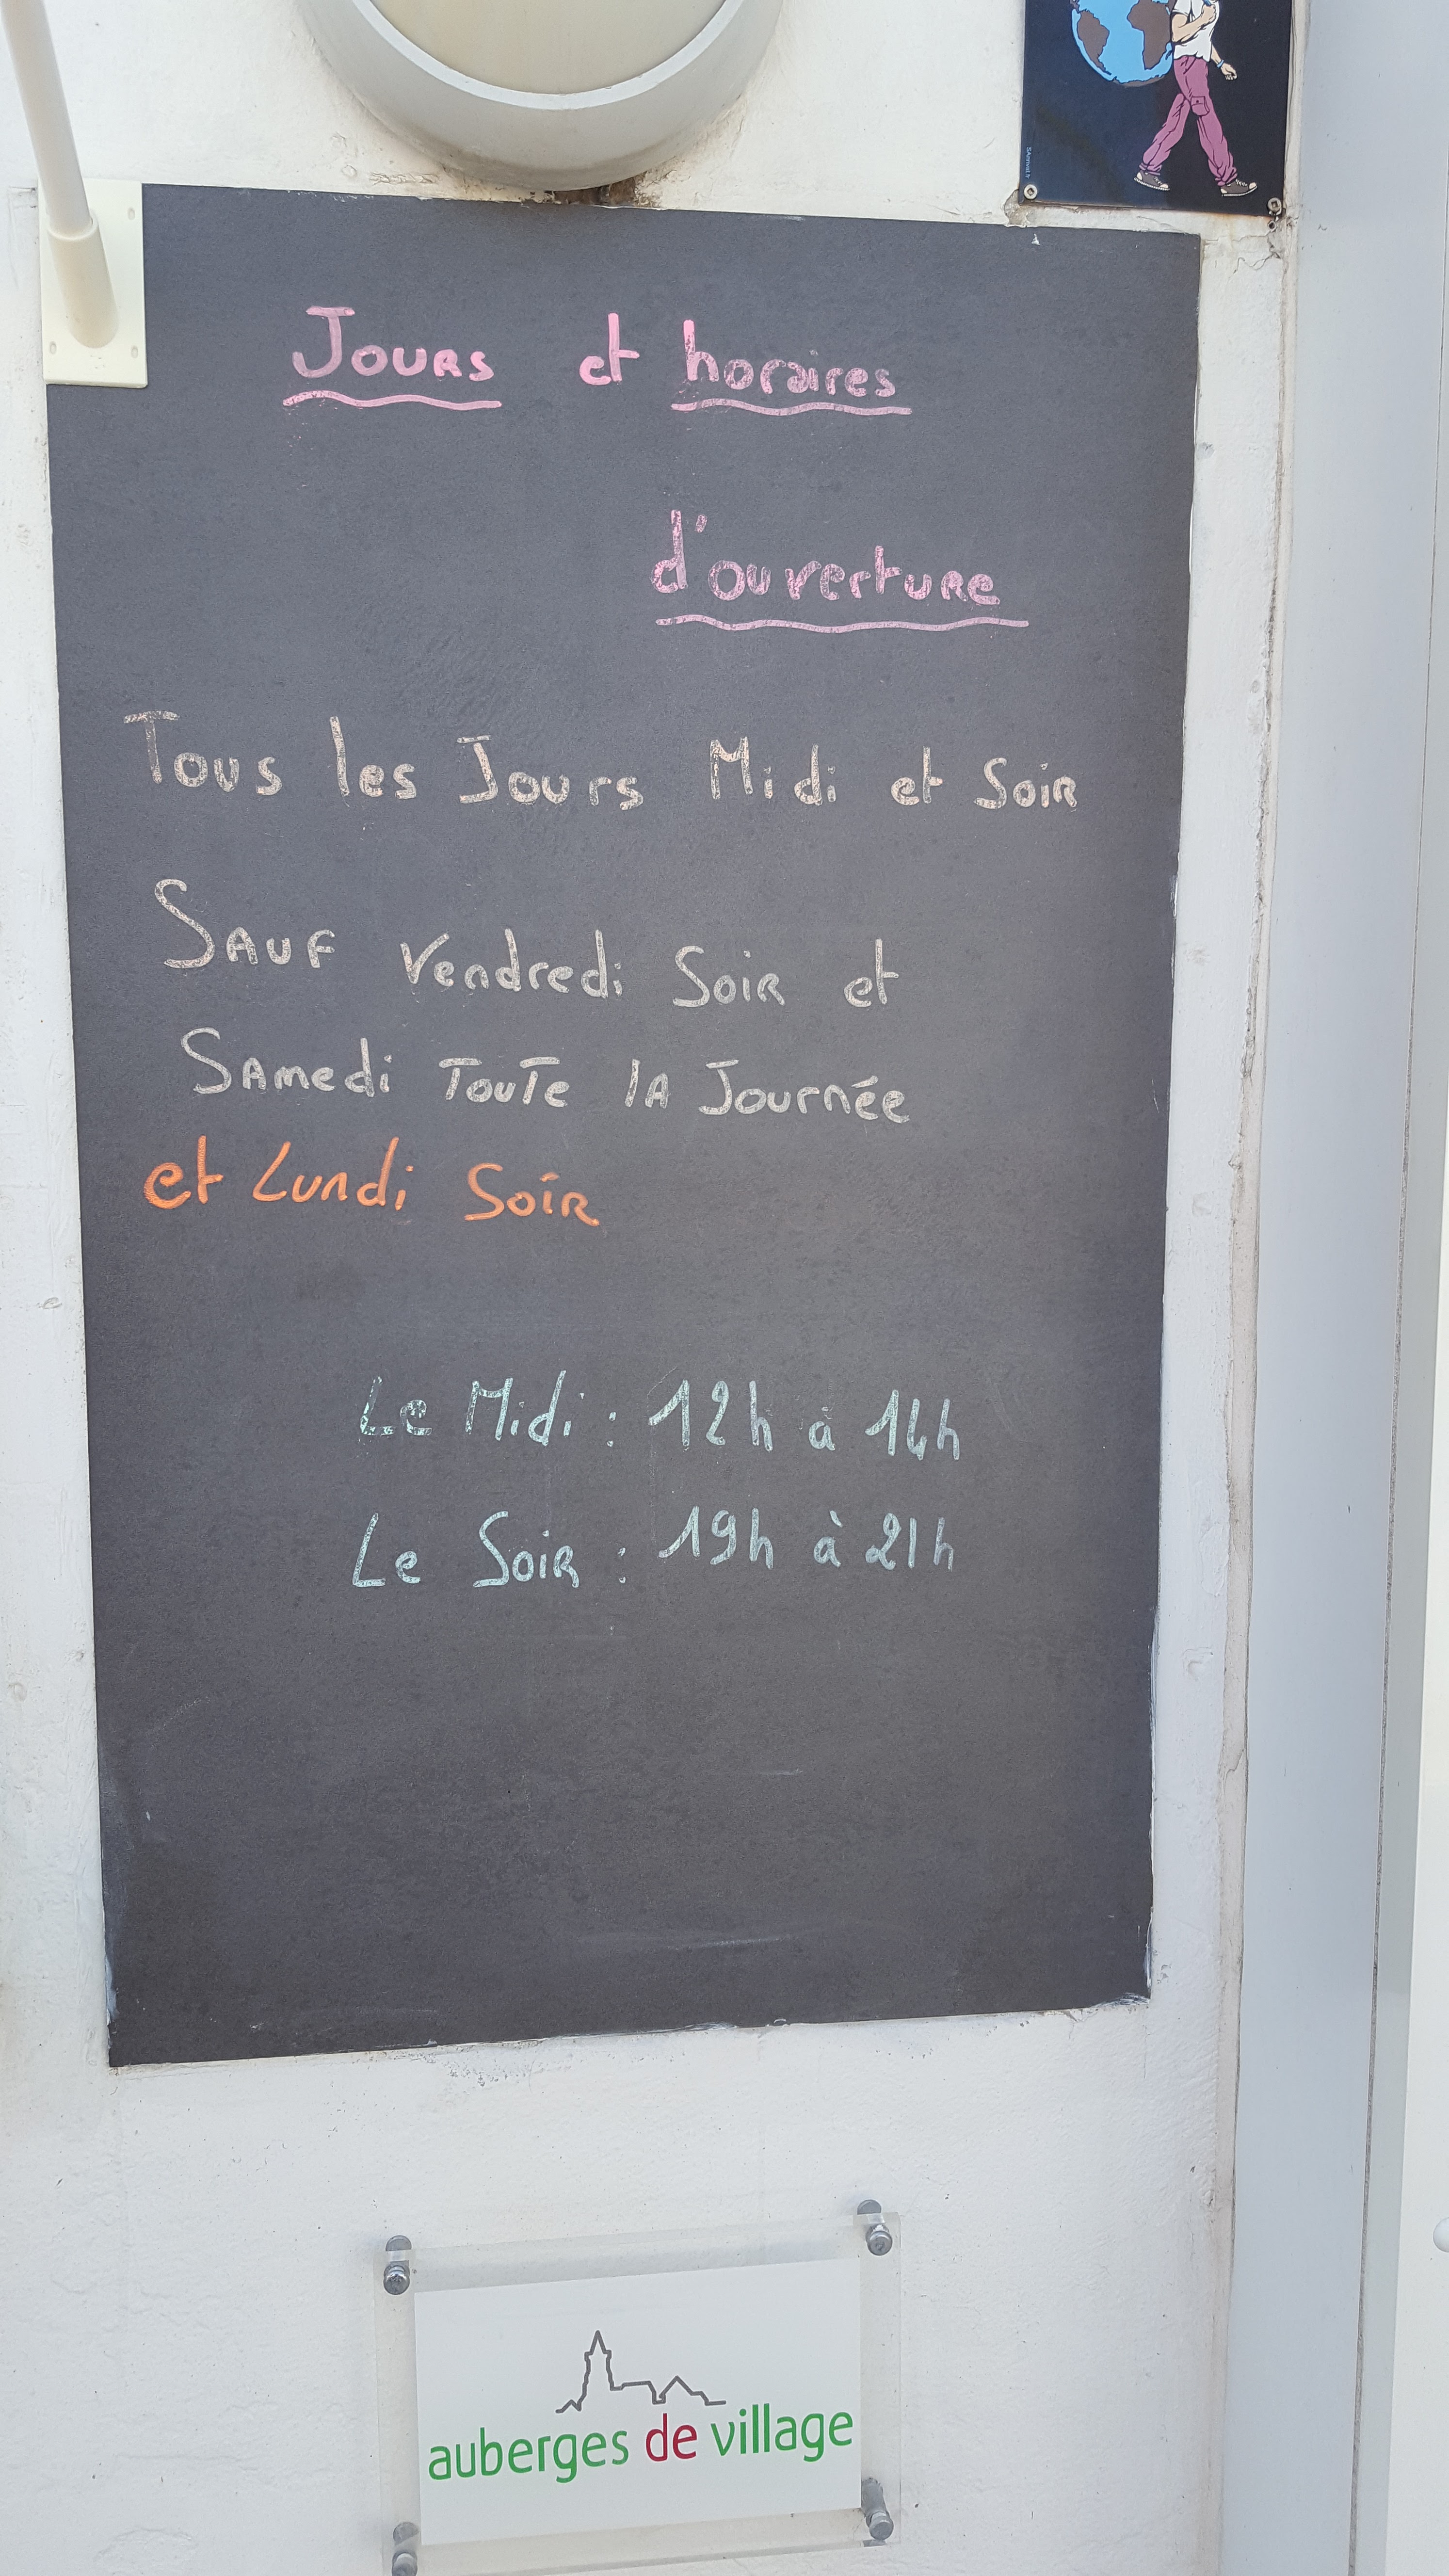 Jours et horaires
d'ouverture
Tous les Jours Midi et Soir
Sauf Vendredi Soir et
Samedi Toute la Journée
et Lundi Soir
Le Midi : 12h à 14h
Le Soir : 19h à 21h
auberges de village